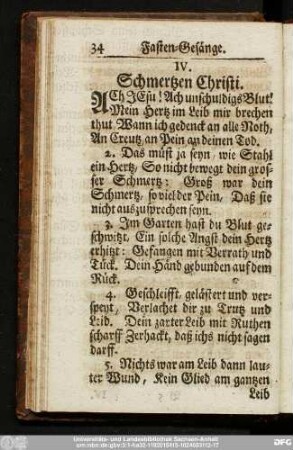 34 Fasten-Gesänge.
IV.
Schmertzen Christi.
ACh JEsu! Ach unschuldigs Blut!
Mein Hertz im Leib mir brechen
thut Wann ich gedenck an alle Noth,
An Creutz an Pein an deinen Tod.
2. Das müst ja seyn, wie Stahl
ein Hertz, So nicht bewegt dein gros-
ser Schmertz: Groß war dein
Schmertz, so viel der Pein, Daß sie
nicht auszusprechen seyn.
3. Im Garten hast du Blut ge-
schwitzt, Ein solche Angst dein Hertz
erhitzt: Gefangen mit Verrath und
Tück. Dein Händ gebunden auf dem
Rück.
4. Geschleifft, gelästert und ver-
speyt, Verlachet dir zu Trutz und
Leid. Dein zarter Leib mit Ruthen
scharff Zerhackt, daß ichs nicht sagen
darff.
5. Nichts war am Leib dann lau-
ter Wund, Kein Glied am gantzen
Leib
Universitäts- und Landesbibliothek Sachsen-Anhalt
DFG